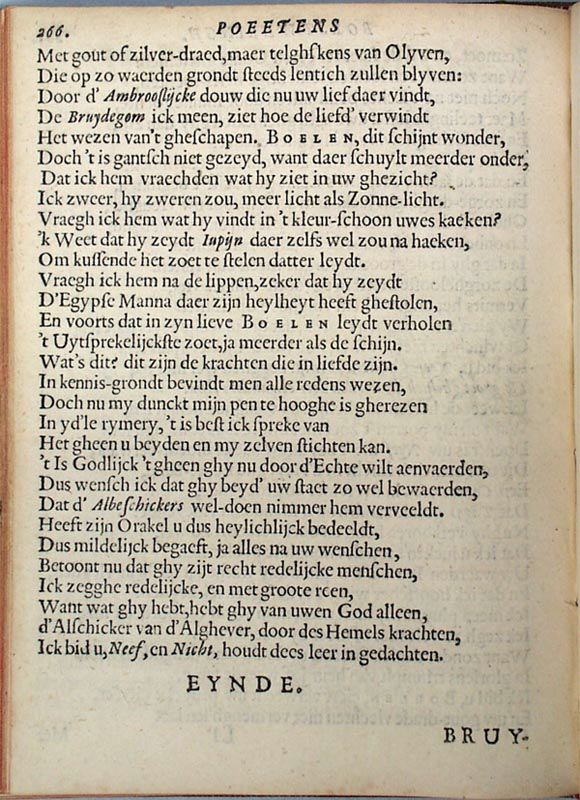 266. POEETENS
Met gout of zilver-draed, maer telghskens van Olyven,
Die op zo waerden grondt steeds lentich zullen blyven:
Door d' Ambrooslijcke douw die nu uw lief daer vindt,
De Bruydegom ick meen, ziet hoe de liefd' verwindt
Het wezen van't gheschapen. BOELEN, dit schijnt wonder,
Doch 't is gantsch niet gezeyd, want daer schuylt meerder onder,
Dat ick hem vraechden wat hy ziet in uw ghezicht?
Ick zweer, hy zweren zou, meer licht als Zonne-licht.
Vraegh ick hem wat hy vindt in 't kleur-schoon uwes kaeken?
'k Weet dat hy zeydt Iupijn daer zelfs wel zou na haeken,
Om kussende het zoet te stelen datter leydt.
Vraegh ick hem na de lippen, zeker dat hy zeydt
D'Egypse Manna daer zijn heylheyt heeft ghestolen,
En voorts dat in zyn lieve BOELEN leydt verholen
't Uytsprekelijckste zoet, ja meerder als de schijn.
Wat's dit? dit zijn de krachten die in liefde zijn.
In kennis-grondt bevindt men alle redens wezen,
Doch nu my dunckt mijn pen te hooghe is gherezen
In yd'le rymery, 't is best ick spreke van
Het gheen u beyden en my zelven stichten kan.
't Is Godlijck 't gheen ghy nu door d'Echte wilt aenvaerden,
Dus wensch ick dat ghy beyd' uw staet zo wel bewaerden,
Dat d' Albeschickers wel-doen nimmer hem verveeldt.
Heeft zijn Orakel u dus heylichlijck bedeeldt,
Dus mildelijck begaeft, ja alles na uw wenschen,
Betoont nu dat ghy zijt recht redelijcke menschen,
Ick zegghe redelijcke, en met groote reen,
Want wat ghy hebt, hebt ghy van uwen God alleen,
d'Alschicker van d'Alghever, door des Hemels krachten,
Ick bid u, Neef, en Nicht, houdt dees leer in gedachten.
EYNDE.
BRUY-